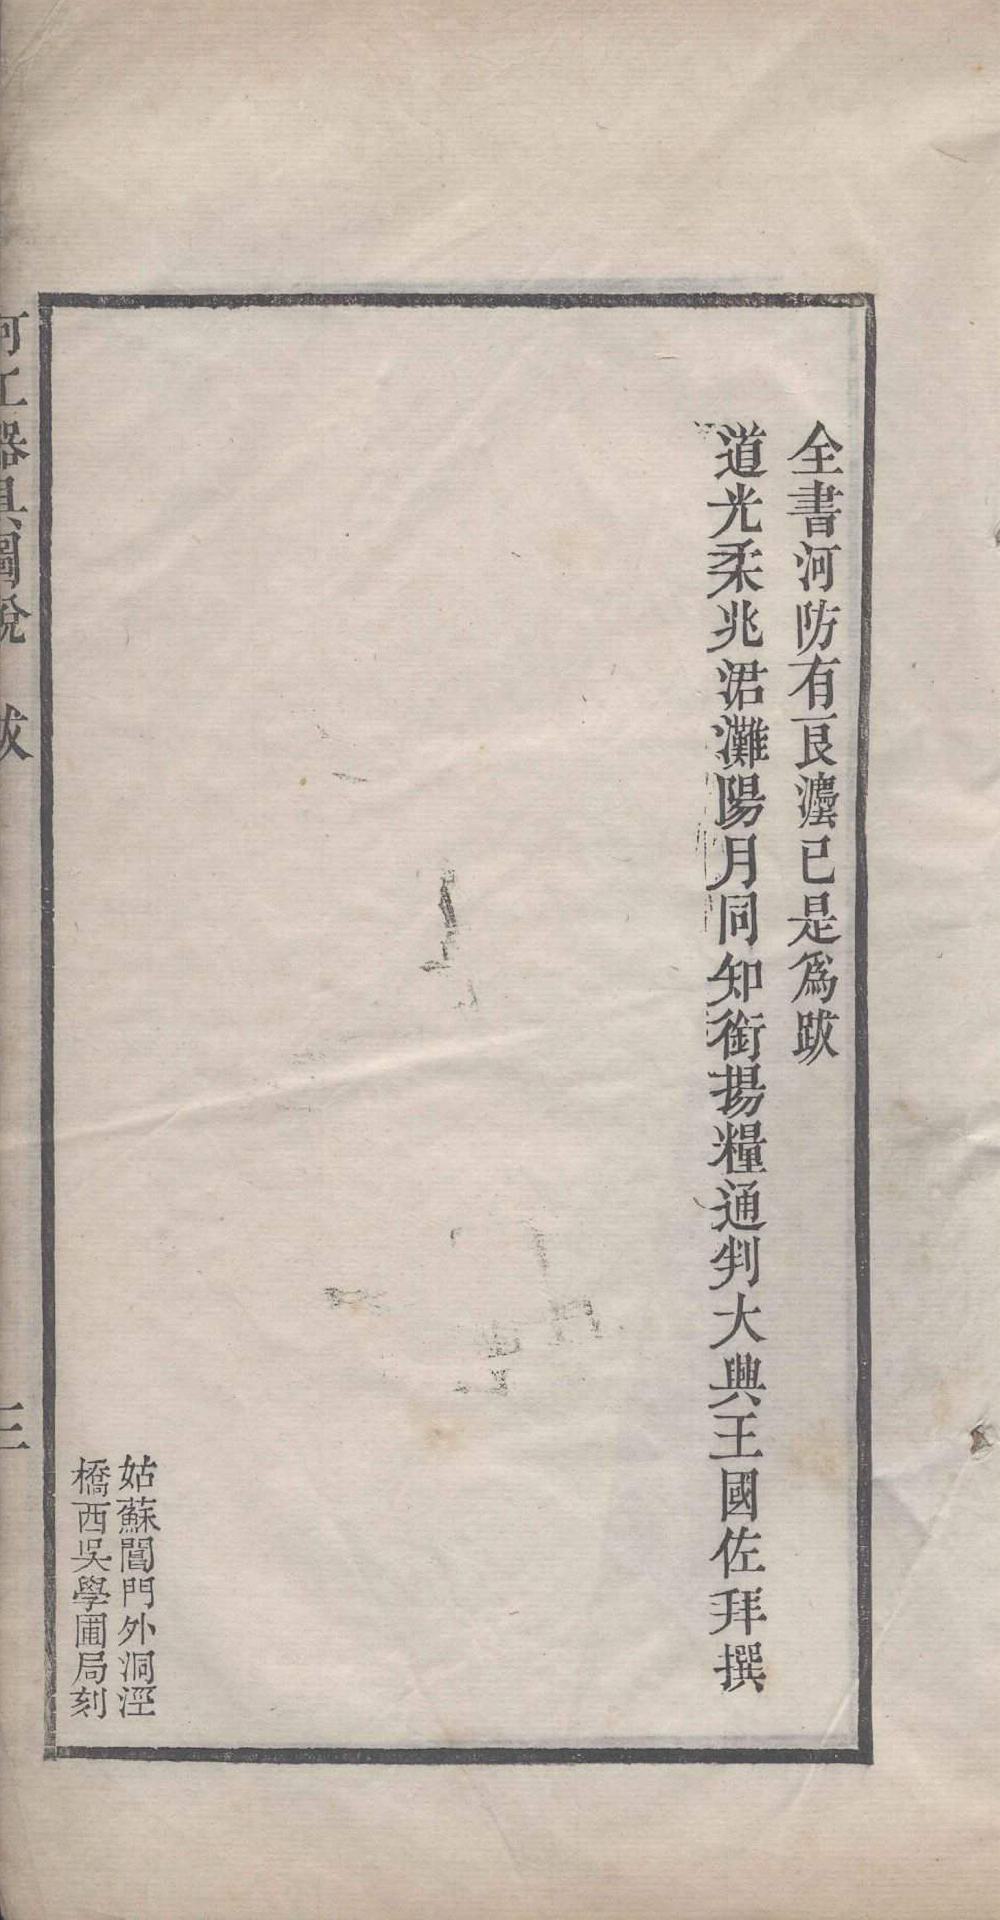 全書河防有良灋已是爲跋
道光柔兆涒灘陽月同知銜揚糧通判大興王國佐拜撰
姑蘇閶門外洞涇
橋西吳學圃局刻
河工器具圖說　跋　三